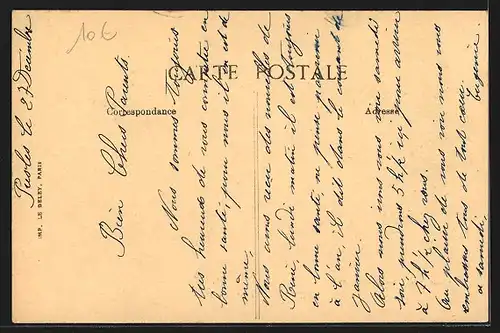 10€
CARTE POSTALE
Correspondance
Adresse
IMP. LE DELEY, PARIS
le 27 Décembre
Bien Chers Parents.
Nous sommes toujours
très heureux de vous connaître en
bonne santé, pour nous il en est de
même.
Nous avons reçu des nouvelles de
René, lundi matin il est toujours
en bonne santé ne pense pas venir
à l'an, il dit dans le courant de
janvier.
Alors nous irons vous voir samedi
soir prendrons 5h½ ici pour arriver
à 7h½ chez vous.
Au plaisir de vous voir nous vous
embrassons tous de tout cœur.
à samedi. Eugénie